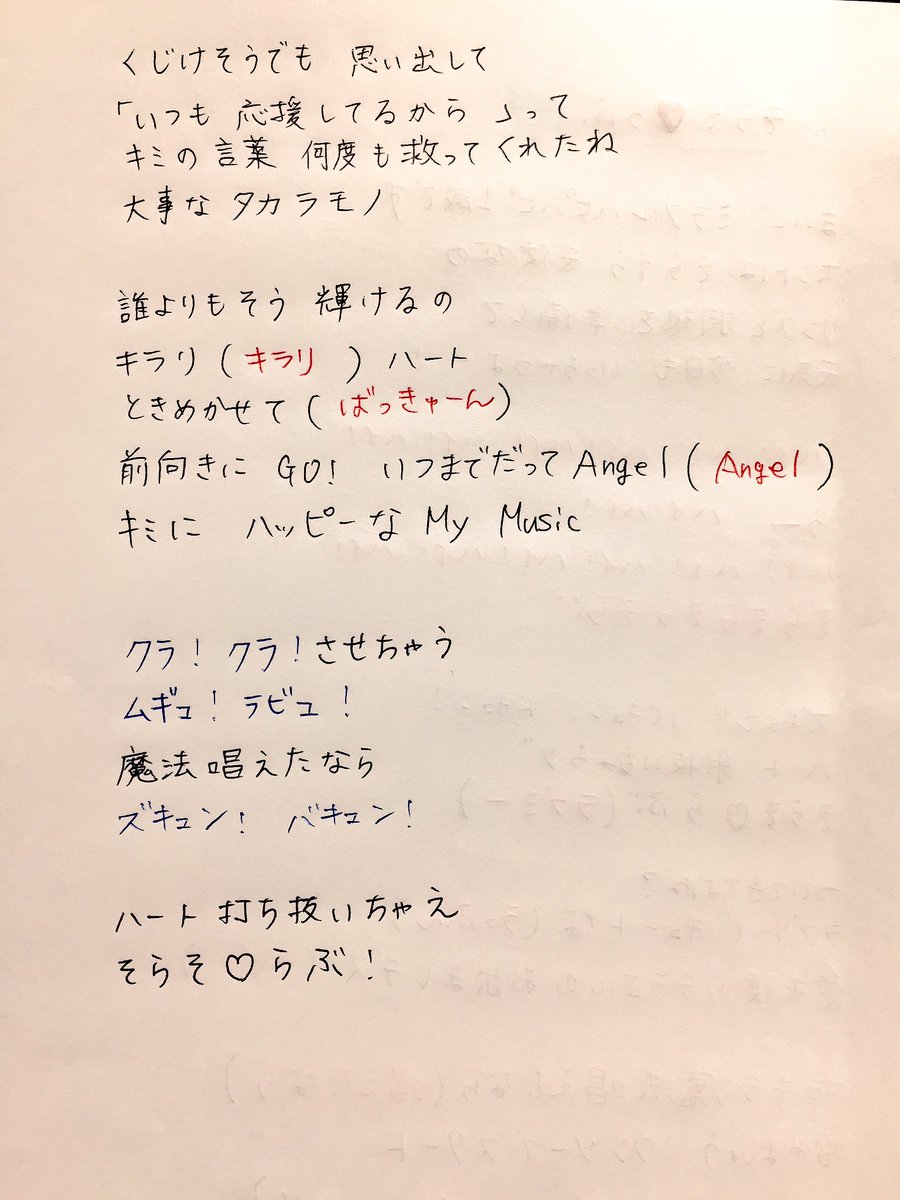 くじけそうでも 思い出して
「いつも 応援してるから 」って
キミの言葉 何度も救ってくれたね
大事な タカラモノ
誰よりもそう 輝けるの
キラリ ( キラリ ) ハート
ときめかせて ( ばっきゅーん )
前向きに GO! いつまでだって Angel ( Angel )
キミに ハッピーな My Music
クラ! クラ! させちゃう
ムギュ! ラビュ!
魔法唱えたなら
ズキュン! バキュン!
ハート 打ち抜いちゃえ
そらそ♡らぶ!